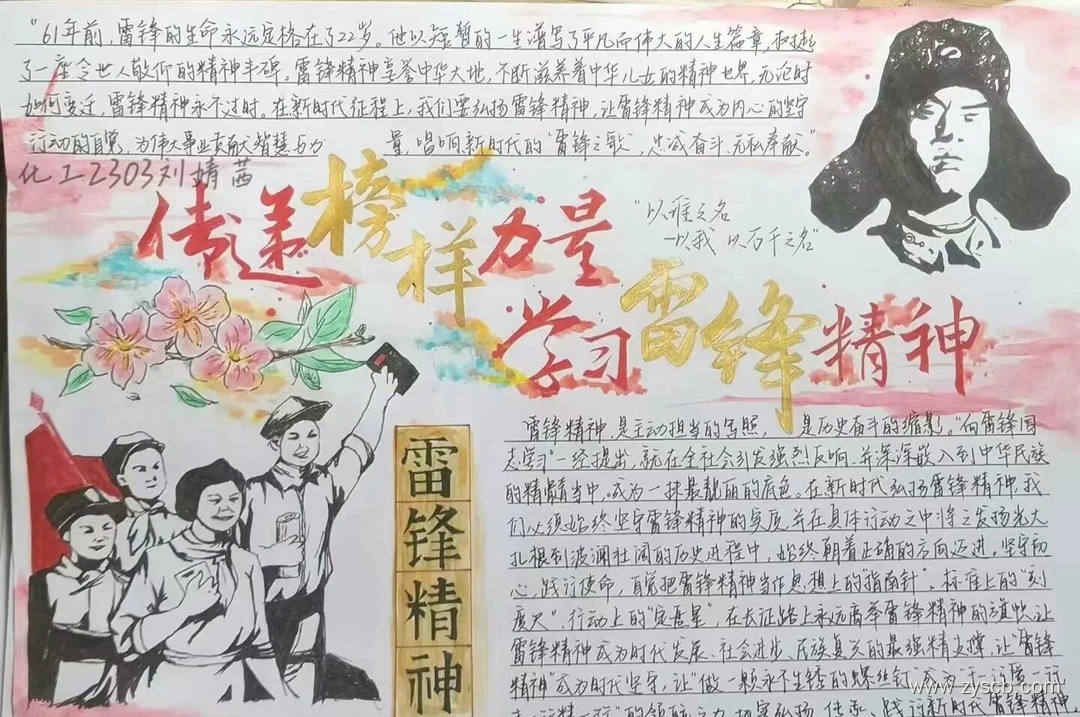 "61年前，雷锋的生命永远定格在了22岁。他以短暂的一生谱写了平凡而伟大的人生篇章，树起
了一座令世人敬仰的精神丰碑。雷锋精神享誉中华大地，不断滋养着中华儿女的精神世界，无论时
如何变迁，雷锋精神永不过时。在新时代征程上，我们要弘扬雷锋精神，让雷锋精神成为内心的坚守
行动的自觉，为伟大事业贡献智慧与力量，唱响新时代的"雷锋之歌"，忠诚奋斗，无私奉献。"
化工2303刘婧茜
传递榜样力量
"以谁之名
—以我 以百千之名"
学习雷锋精神
雷锋精神
雷锋精神，是主动担当的写照，是历史奋斗的缩影。"向雷锋同
志学习"一经提出，就在全社会引发强烈反响，并深深嵌入到中华民族
的精髓当中，成为一抹最靓丽的底色。在新时代弘扬雷锋精神，我
们必须始终坚守雷锋精神的实质，并在具体行动之中将之发扬光大
扎根到波澜壮阔的历史进程中，始终朝着正确的方向迈进，坚守初
心，践行使命，自觉把雷锋精神当作思想上的"指南针"、标准上的"刻
度尺"、行动上的"定盘星"，在长征路上永远高举雷锋精神的旗帜，让
雷锋精神成为时代发展、社会进步、民族复兴的最强精支撑，让"雷锋
精神"成为时代坚守，让"做一颗永不生锈的螺丝钉"成为"干一行爱一行
"的领航之力，切实弘扬、传承、践行新时代雷锋精神。
www.zyscb.com